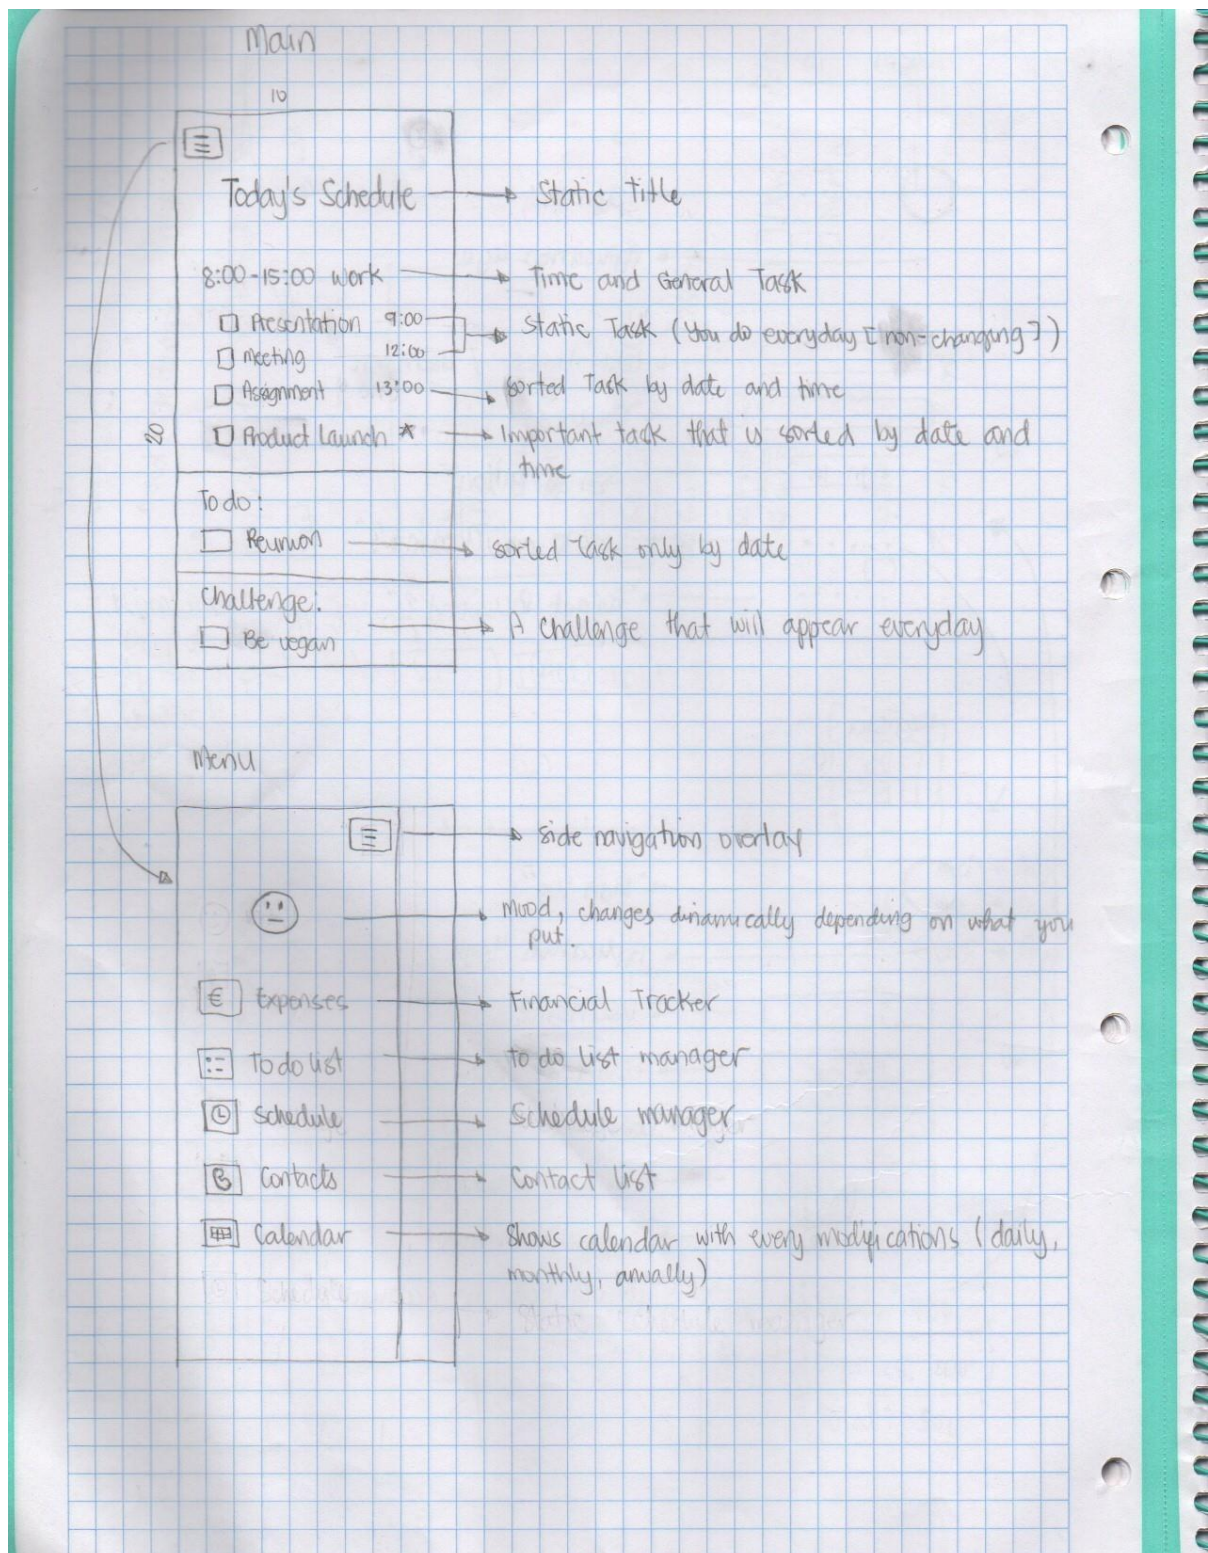 Main
10
Today's Schedule
Static Title
8:00-15:00 Work
Time and General Task
Presentation 9:00
Meeting 12:00
Static Task (You do everyday [non-changing])
Assignment 13:00
Sorted Task by date and time
20
Product Launch *
Important task that is sorted by date and
time
To do:
Reunion
sorted task only by date
Challenge:
Be vegan
A challenge that will appear everyday
Menu
side navigation overlay
Mood, changes dinamically depending on what you
put.
€ Expenses
Financial Tracker
To do list
to do list manager
Schedule
Schedule manager
Contacts
Contact list
Calendar
Shows calendar with every modifications (daily,
monthly, anually)